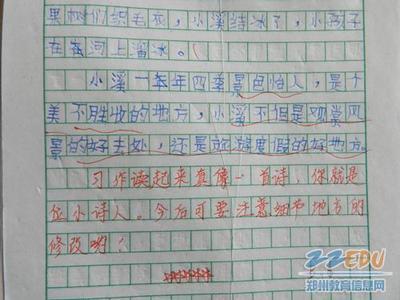 果树们织毛衣，小溪结冰了，小孩子
在在河上溜冰。
小溪一年四季景色怡人，是个
美不胜收的地方，小溪不但是观赏风
景的好去处，还是旅游度假的好地方。
习作读起来真像一首诗，你就是
位小诗人。今后可要注意细节地方的
修改哟！
ZZEDU
郑州教育信息网